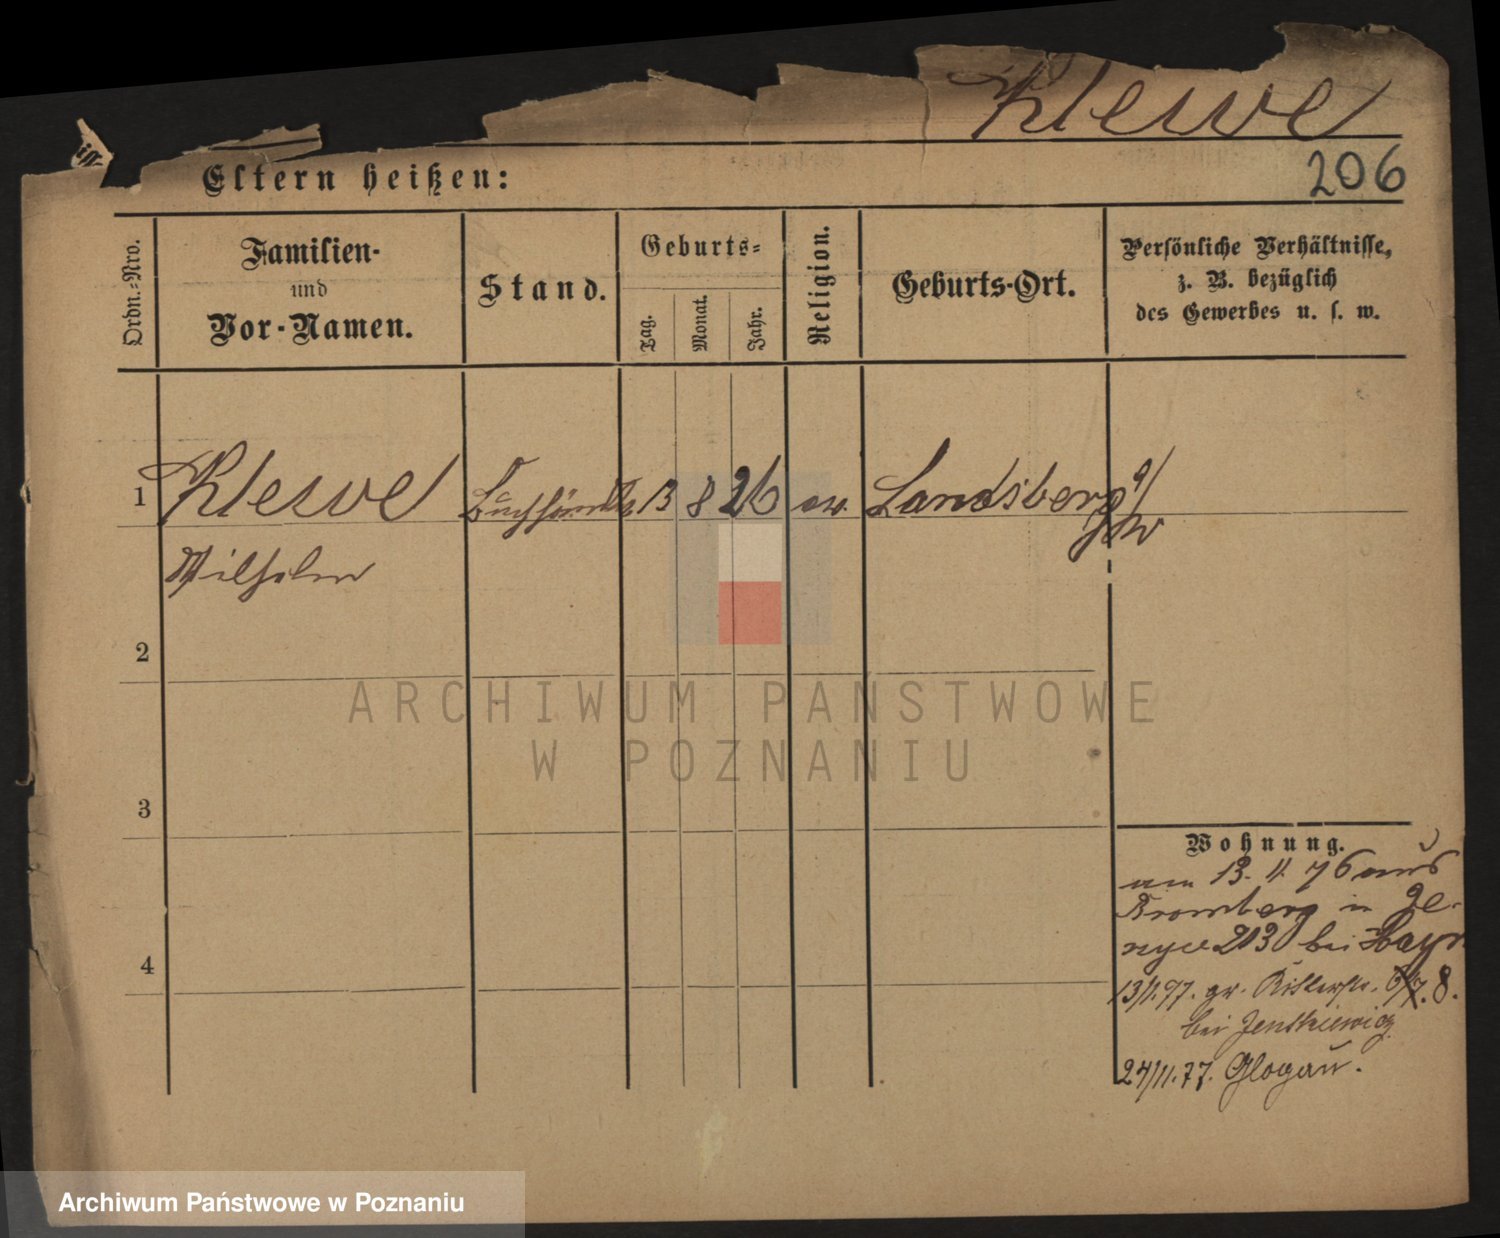 Klewe
206
Eltern heißen:
Ordn.-Nro.
Familien-
und
Vor-Namen.
Stand.
Geburts-
Tag.
Monat.
Jahr.
Religion.
Geburts-Ort.
Persönliche Verhältnisse,
z. B. bezüglich
des Gewerbes u. s. w.
1 Klewe 13 8 26 ev. Landsberg a/
W
Wilhelm
2
ARCHIWUM PAŃSTWOWE
W POZNANIU
3
Wohnung.
am 13. 11. 76 aus
Bromberg in Je-
rzyce 213 bei
gr. Ritterstr. 8.
bei
24/11.77. Glogau.
4
Archiwum Państwowe w Poznaniu